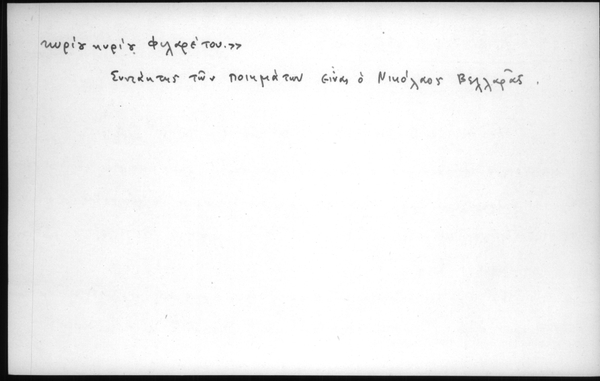 κυρίου κυρίου Φιλαρέτου.»
Συντάκτης τῶν ποιημάτων εἶναι ὁ Νικόλαος Βελλαρᾶς.